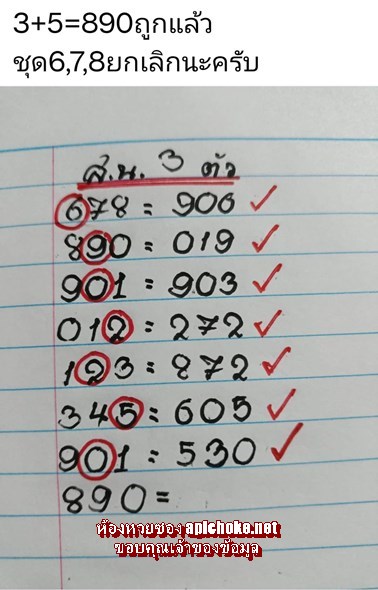 3+5=890ถูกแล้ว
ชุด6,7,8ยกเลิกนะครับ
ส.น. 3 ตัว
678 = 906 ✓
890 = 019 ✓
901 = 903 ✓
012 = 272 ✓
123 = 872 ✓
345 = 605 ✓
901 = 530 ✓
890 =
ห้องหวยซอง apichoke.net
ขอบคุณเจ้าของข้อมูล